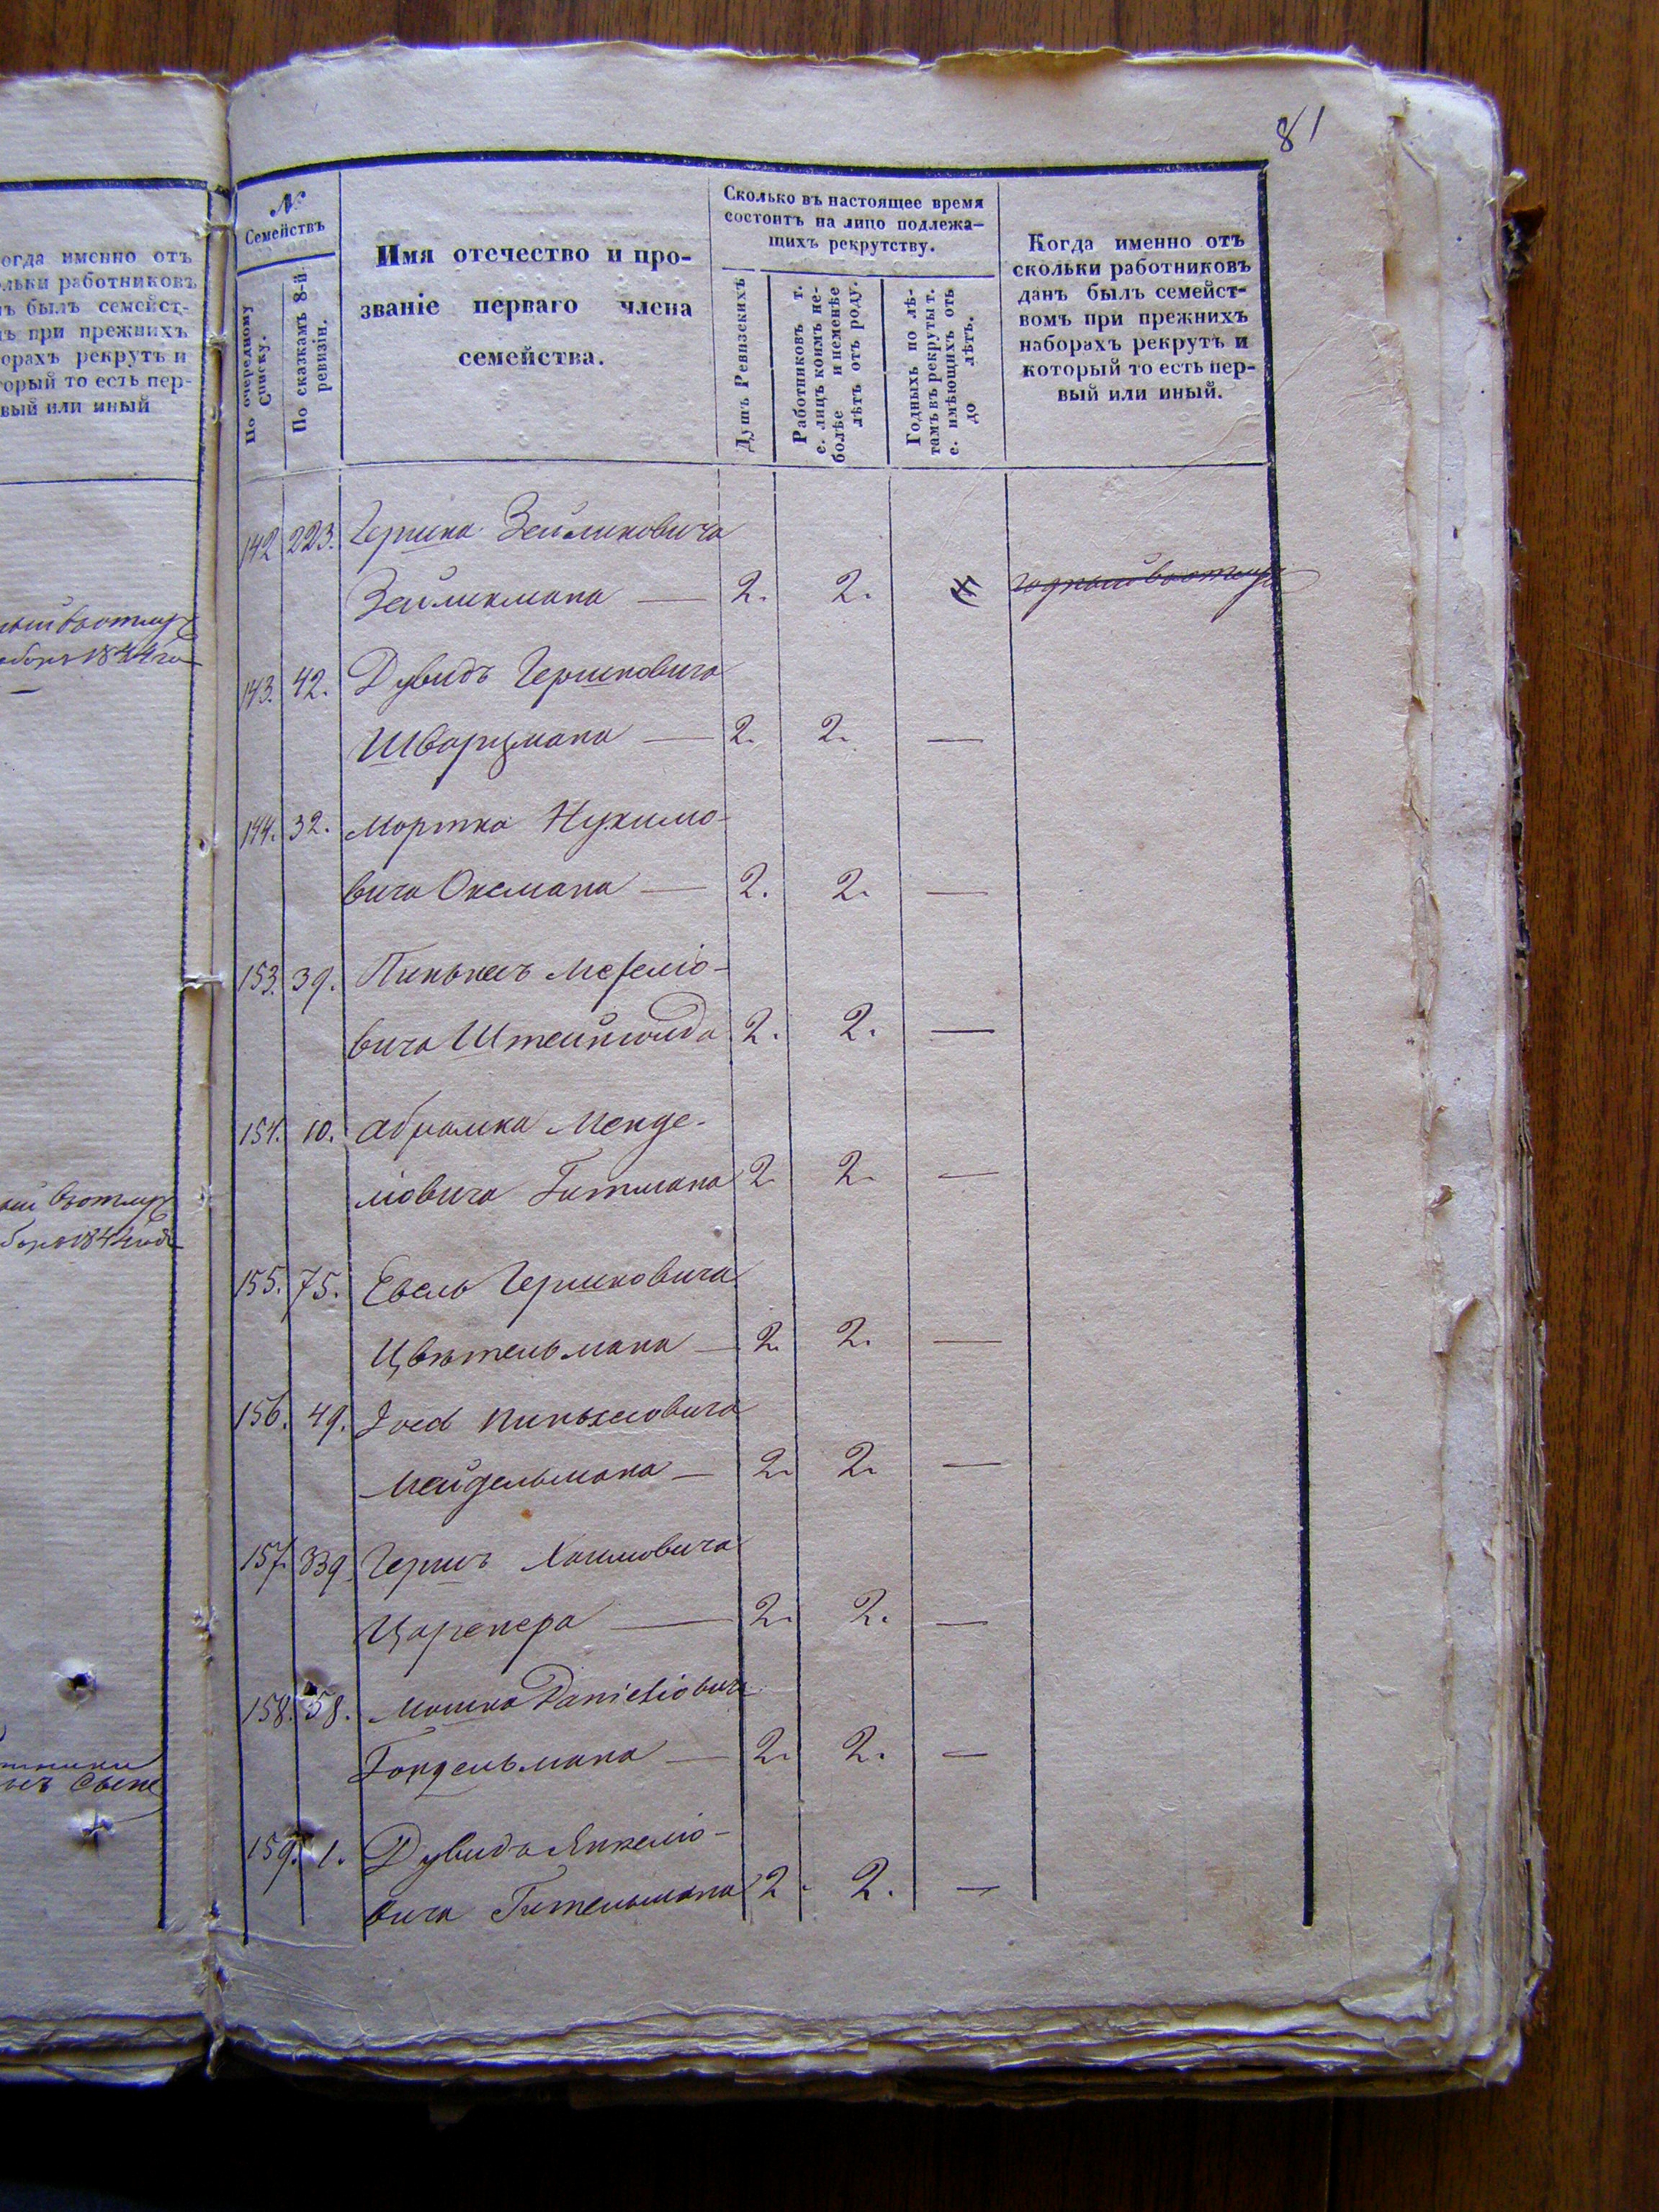 81
огда именно отъ
льки работниковъ
ъ былъ семейст-
ъ при прежнихъ
орахъ рекрутъ и
орый то есть пер-
вый или иный
№
Семействъ
По очередному
Списку.
По сказкамъ 8-й
ревизіи.
Имя отечество и про-
званіе перваго члена
семейства.
Сколько въ настоящее время
состоитъ на лицо подлежа-
щихъ рекрутству.
Душъ Ревизскихъ
Работниковъ т.
е. лицъ коимъ не-
болѣе и неменѣе
лѣтъ отъ роду.
Годныхъ по лѣ-
тамъ въ рекруты т.
е. имѣющихъ отъ
до лѣтъ.
Когда именно отъ
скольки работниковъ
данъ былъ семейст-
вомъ при прежнихъ
наборахъ рекрутъ и
который то есть пер-
вый или иный.
142 223. Гершка Зейликовича
Зейликмана — 2. 2.
143. 42. Дувидъ Гершковича
Шварцмана — 2. 2. —
144. 32. Мортка Нухимо-
вича Оксмана — 2. 2. —
153. 39. Пинькасъ
вича Штейнгольда 2. 2. —
154. 10. Абрамка Менде-
ліовича Гитмана 2 2. —
155. 75. Евель Гершковича
Цвѣтельмана — 2. 2. —
156. 49. Іосъ Пинькасовича
Мейдельмана — 2. 2. —
157. 339. Гершъ Хаимовича
— 2. 2. —
158. 58. Мошка Даніеліовича
Гондельмана — 2. 2. —
159. 1. Дувидъ Янкеліо-
вича Гительмана 2. 2. —